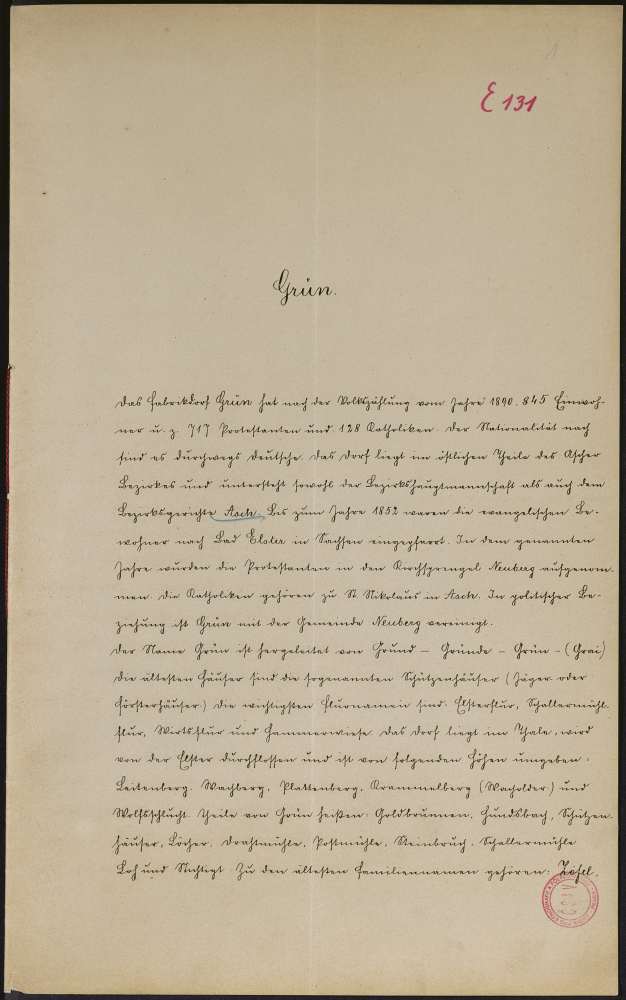 E 131
Grün.
Das Fabrikdorf Grün hat nach der Volkszählung vom Jahre 1890. 845 Einwoh-
ner u. z. 717 Protestanten und 128 Katholiken. Der Nationalität nach
sind es durchwegs Deutsche. Das Dorf liegt im östlichen Theile des Ascher
Bezirkes und untersteht sowohl der Bezirkshauptmannschaft als auch dem
Bezirksgerichte Asch. Bis zum Jahre 1852 waren die evangelischen Be-
wohner nach Bad Elster in Sachsen eingepfarrt. In dem genannten
Jahre wurden die Protestanten in den Kirchsprengel Neuberg aufgenom-
men. Die Katholiken gehören zu St. Nikolaus in Asch. In politischer Be-
ziehung ist Grün mit der Gemeinde Neuberg vereinigt.
Der Name Grün ist hergeleitet von Grund – Gründe – Grün – (Grai)
Die ältesten Häuser sind die sogenannten Schützenhäuser (Jäger oder
Försterhäuser) Die wichtigsten Flurnamen sind: Elsterflur, Schallermühl-
flur, Wirtsflur und Hammerwiese. Das Dorf liegt im Thale, wird
von der Elster durchflossen und ist von folgenden Höhen umgeben:
Leitenberg, Wachberg, Plattenberg, Krammelberg (Wacholder) und
Wolfsschlucht. Theile von Grün heißen: Goldbrunnen, Hundsbach, Schützen-
häuser, Löcher, Drahtmühle, Postmühle, Steinbruch, Schallermühle
Loh und Nichtigt. Zu den ältesten Familiennamen gehören: Zöfel,